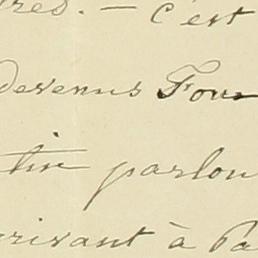 res. — c'est
devenus Four
tir parlou
rivant à Pa